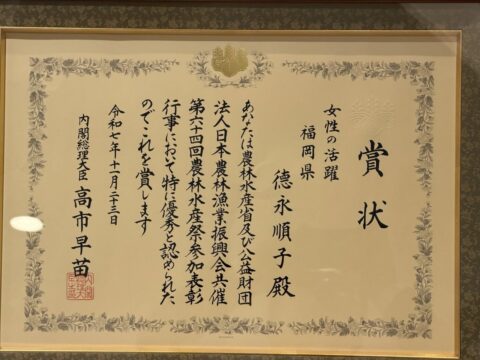 賞状
女性の活躍
福岡県
徳永順子殿
あなたは農林水産省及び公益財団
法人日本農林漁業振興会共催
第六十四回農林水産祭参加表彰
行事において特に優秀と認められた
のでこれを賞します
令和七年十一月二十三日
内閣総理大臣 高市早苗